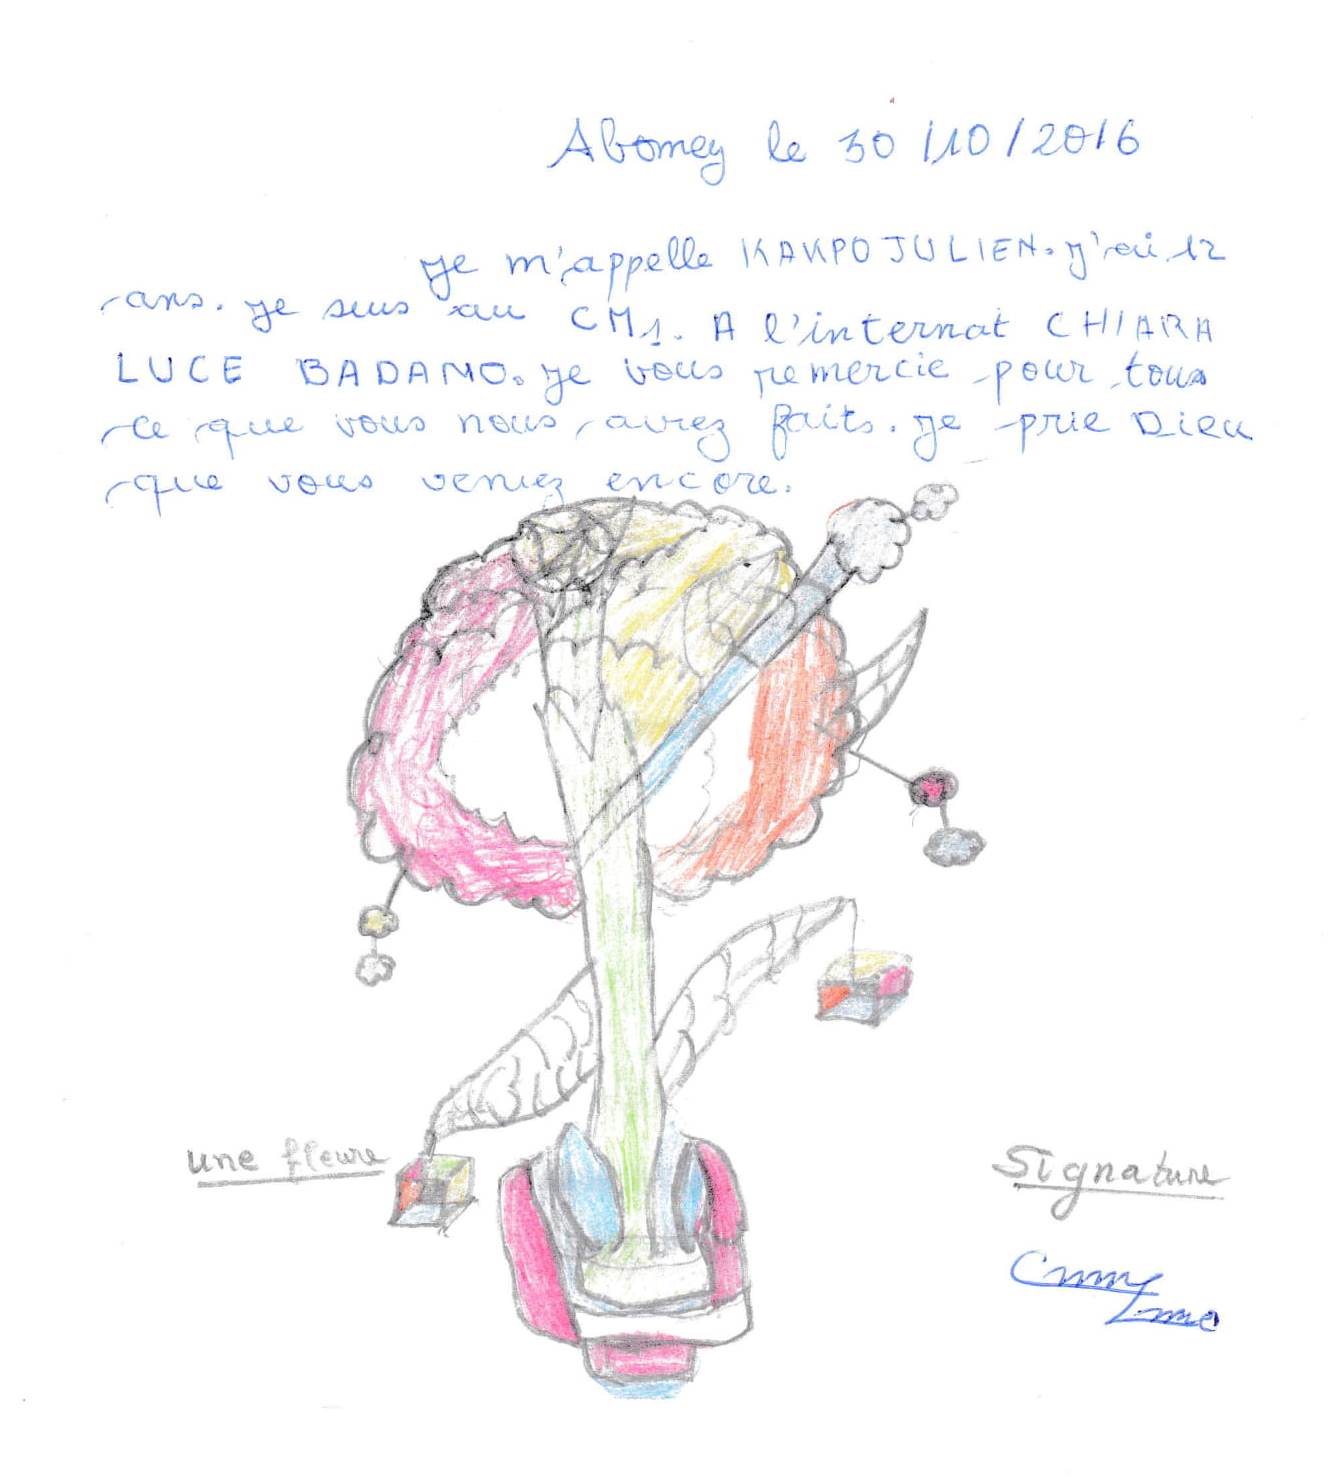 Abomey le 30/10/2016
je m'appelle KAKPO JULIEN. j'ai 12
ans. je suis au CM1. A l'internat CHIARA
LUCE BADANO. je vous remercie pour tous
ce que vous nous avez faits. je prie Dieu
que vous veniez encore.
une fleure
Signature